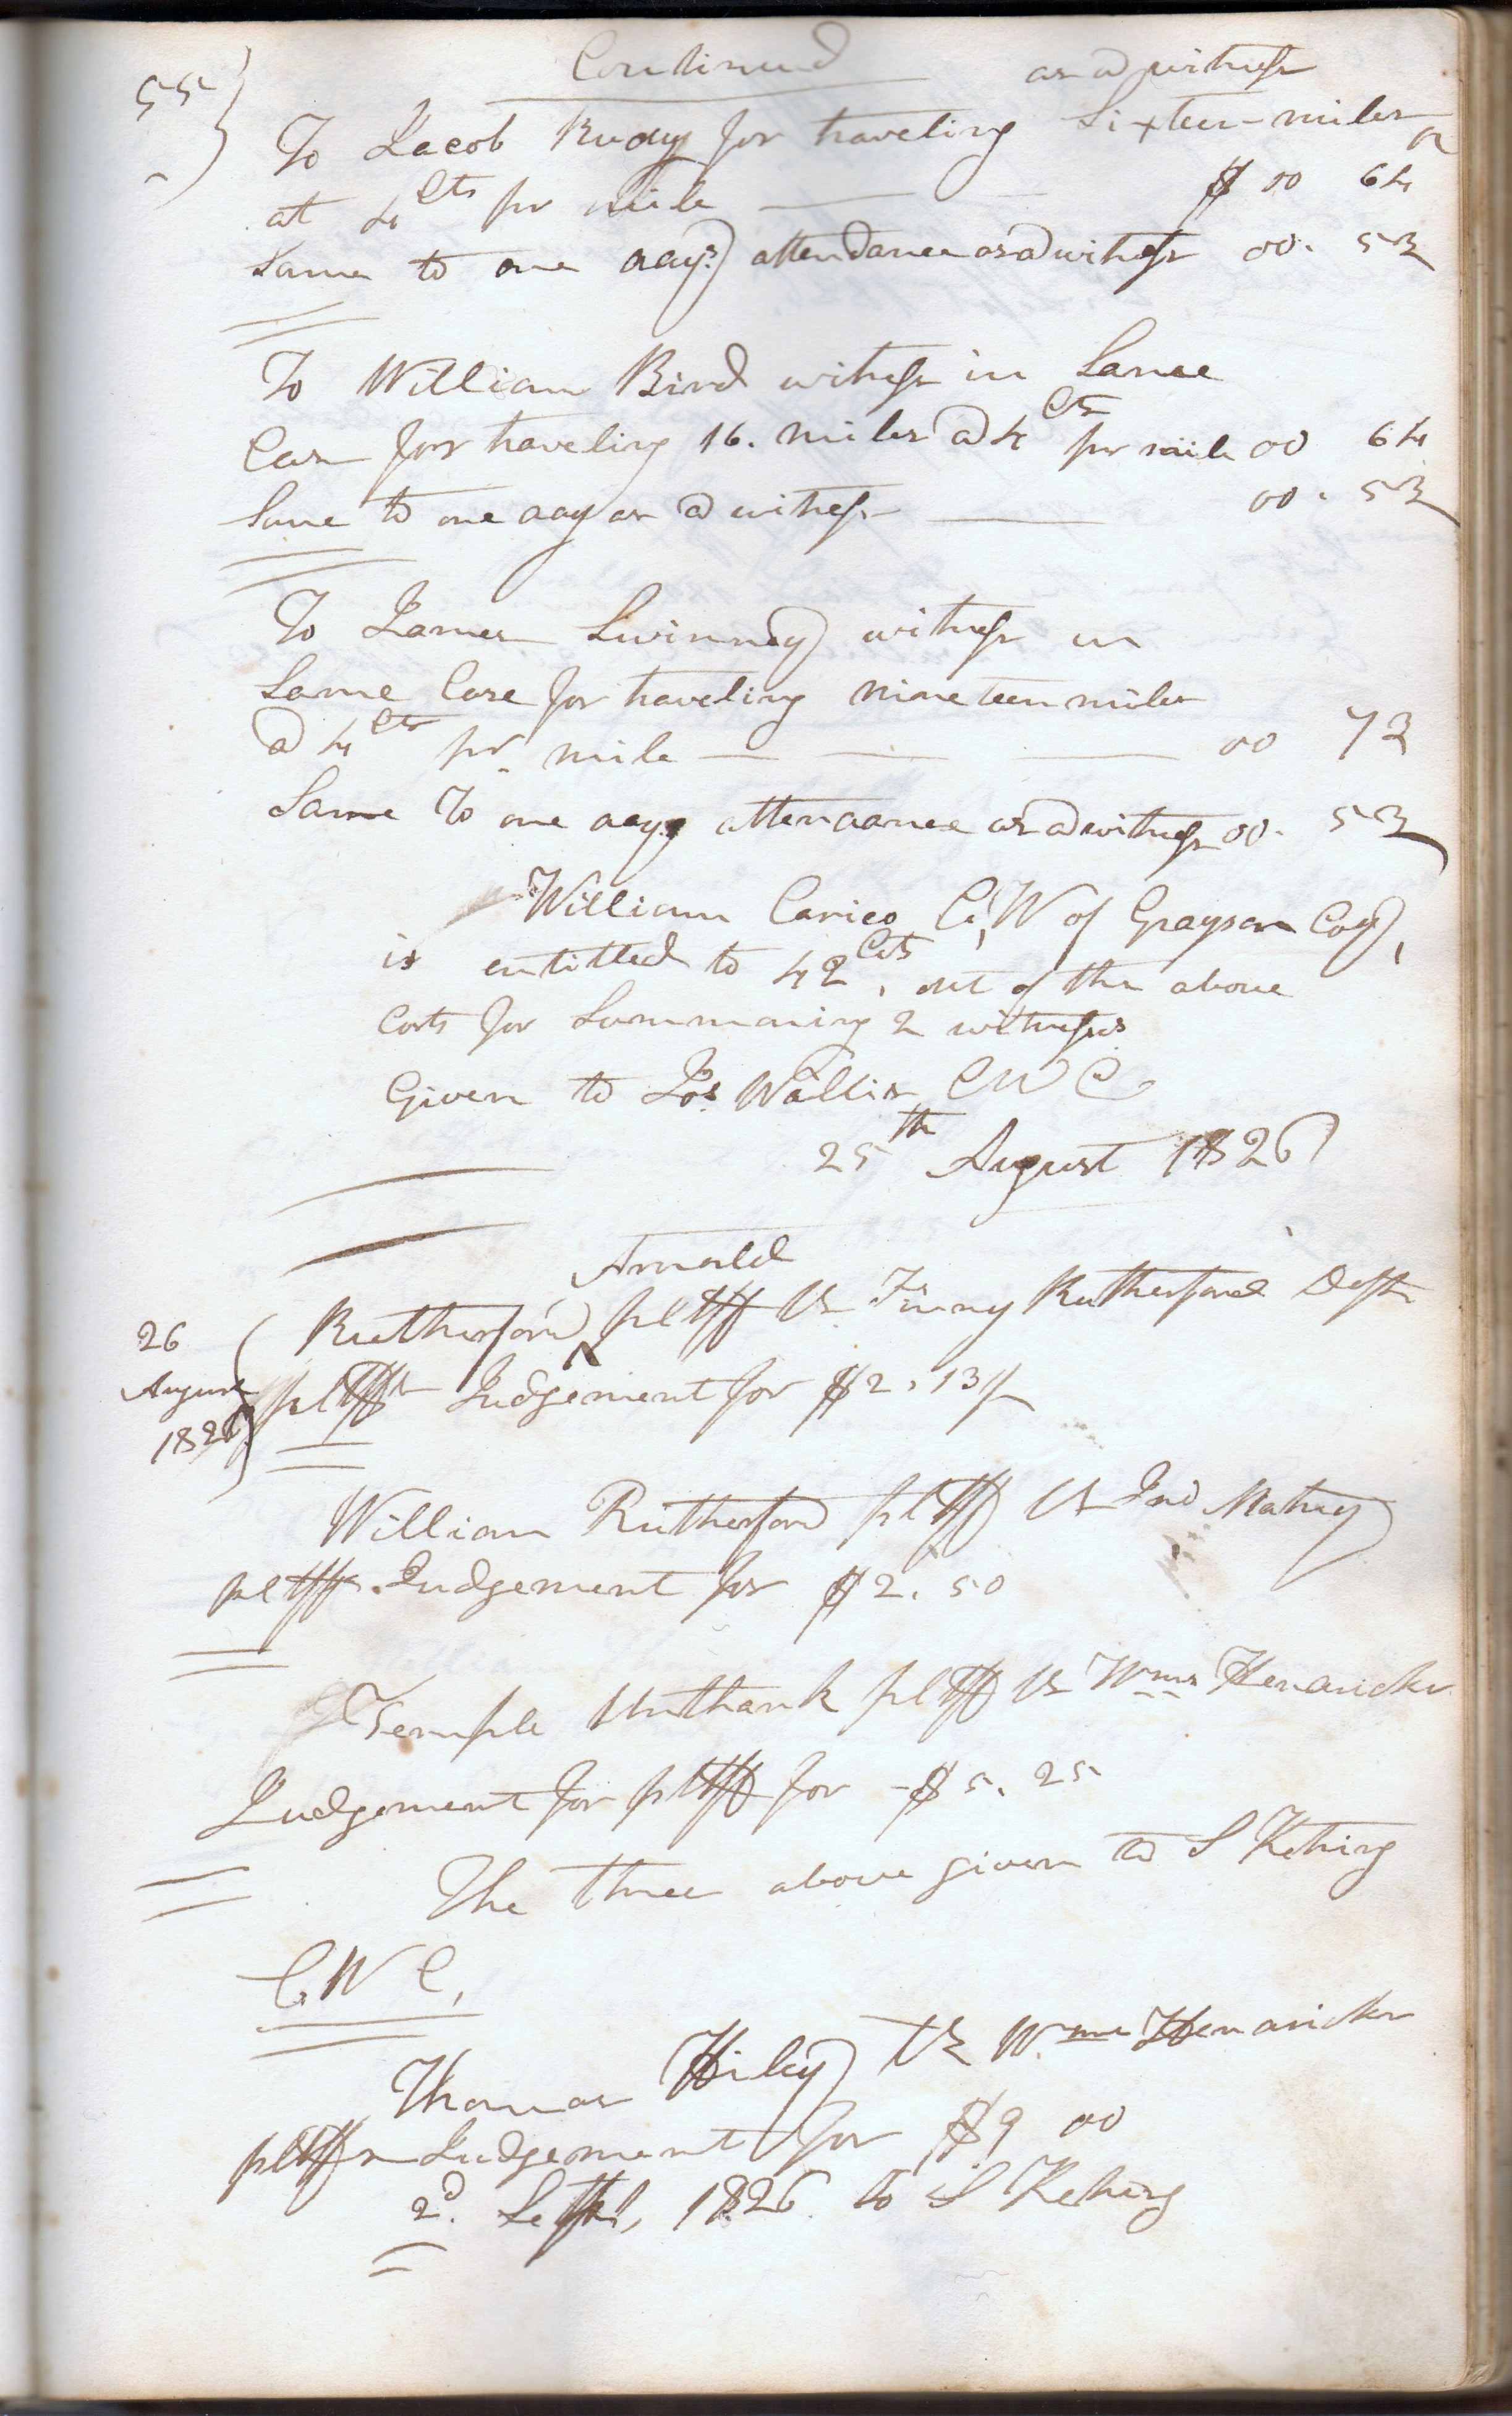 Continued
55
as a witness
To Jacob Rudy for traveling Sixteen miles
at 4 Cts pr mile $ 00 64
Same to one days attendance as a witness 00. 53
To William Bird witness in Same
Case for traveling 16. miles @ 4 Cts pr mile 00 64
Same to one day as a witness 00. 53
To James Swinney witness in
Same Case for traveling nineteen miles
@ 4 Cts pr mile 00 73
Same To one days attendance as a witness 00. 53
William Carico C, W of Grayson Coy,
is entitled to 42 Cts, out of the above
Costs for Summoning 2 witnesses
Given to Jos Wallis C W C
25th August 1826
Arnold
Rutherford pltff Vs Finny Rutherford Deft
26
August
1826
pltffs Judgement for $2.13
William Rutherford pltff Vs Jno
pltffs Judgement for $2.50
Temple Unthank pltff Vs Wms Hendricks
Judgement for pltff for $5.25
The three above given to S Kethirg
C W C,
Thomas Hiley Vs Wm Hendricks
pltffs Judgement for $9 00
2d. Sept, 1826. to S Kethirg